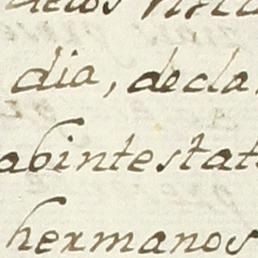 dia, decla
abintestat
hermanos